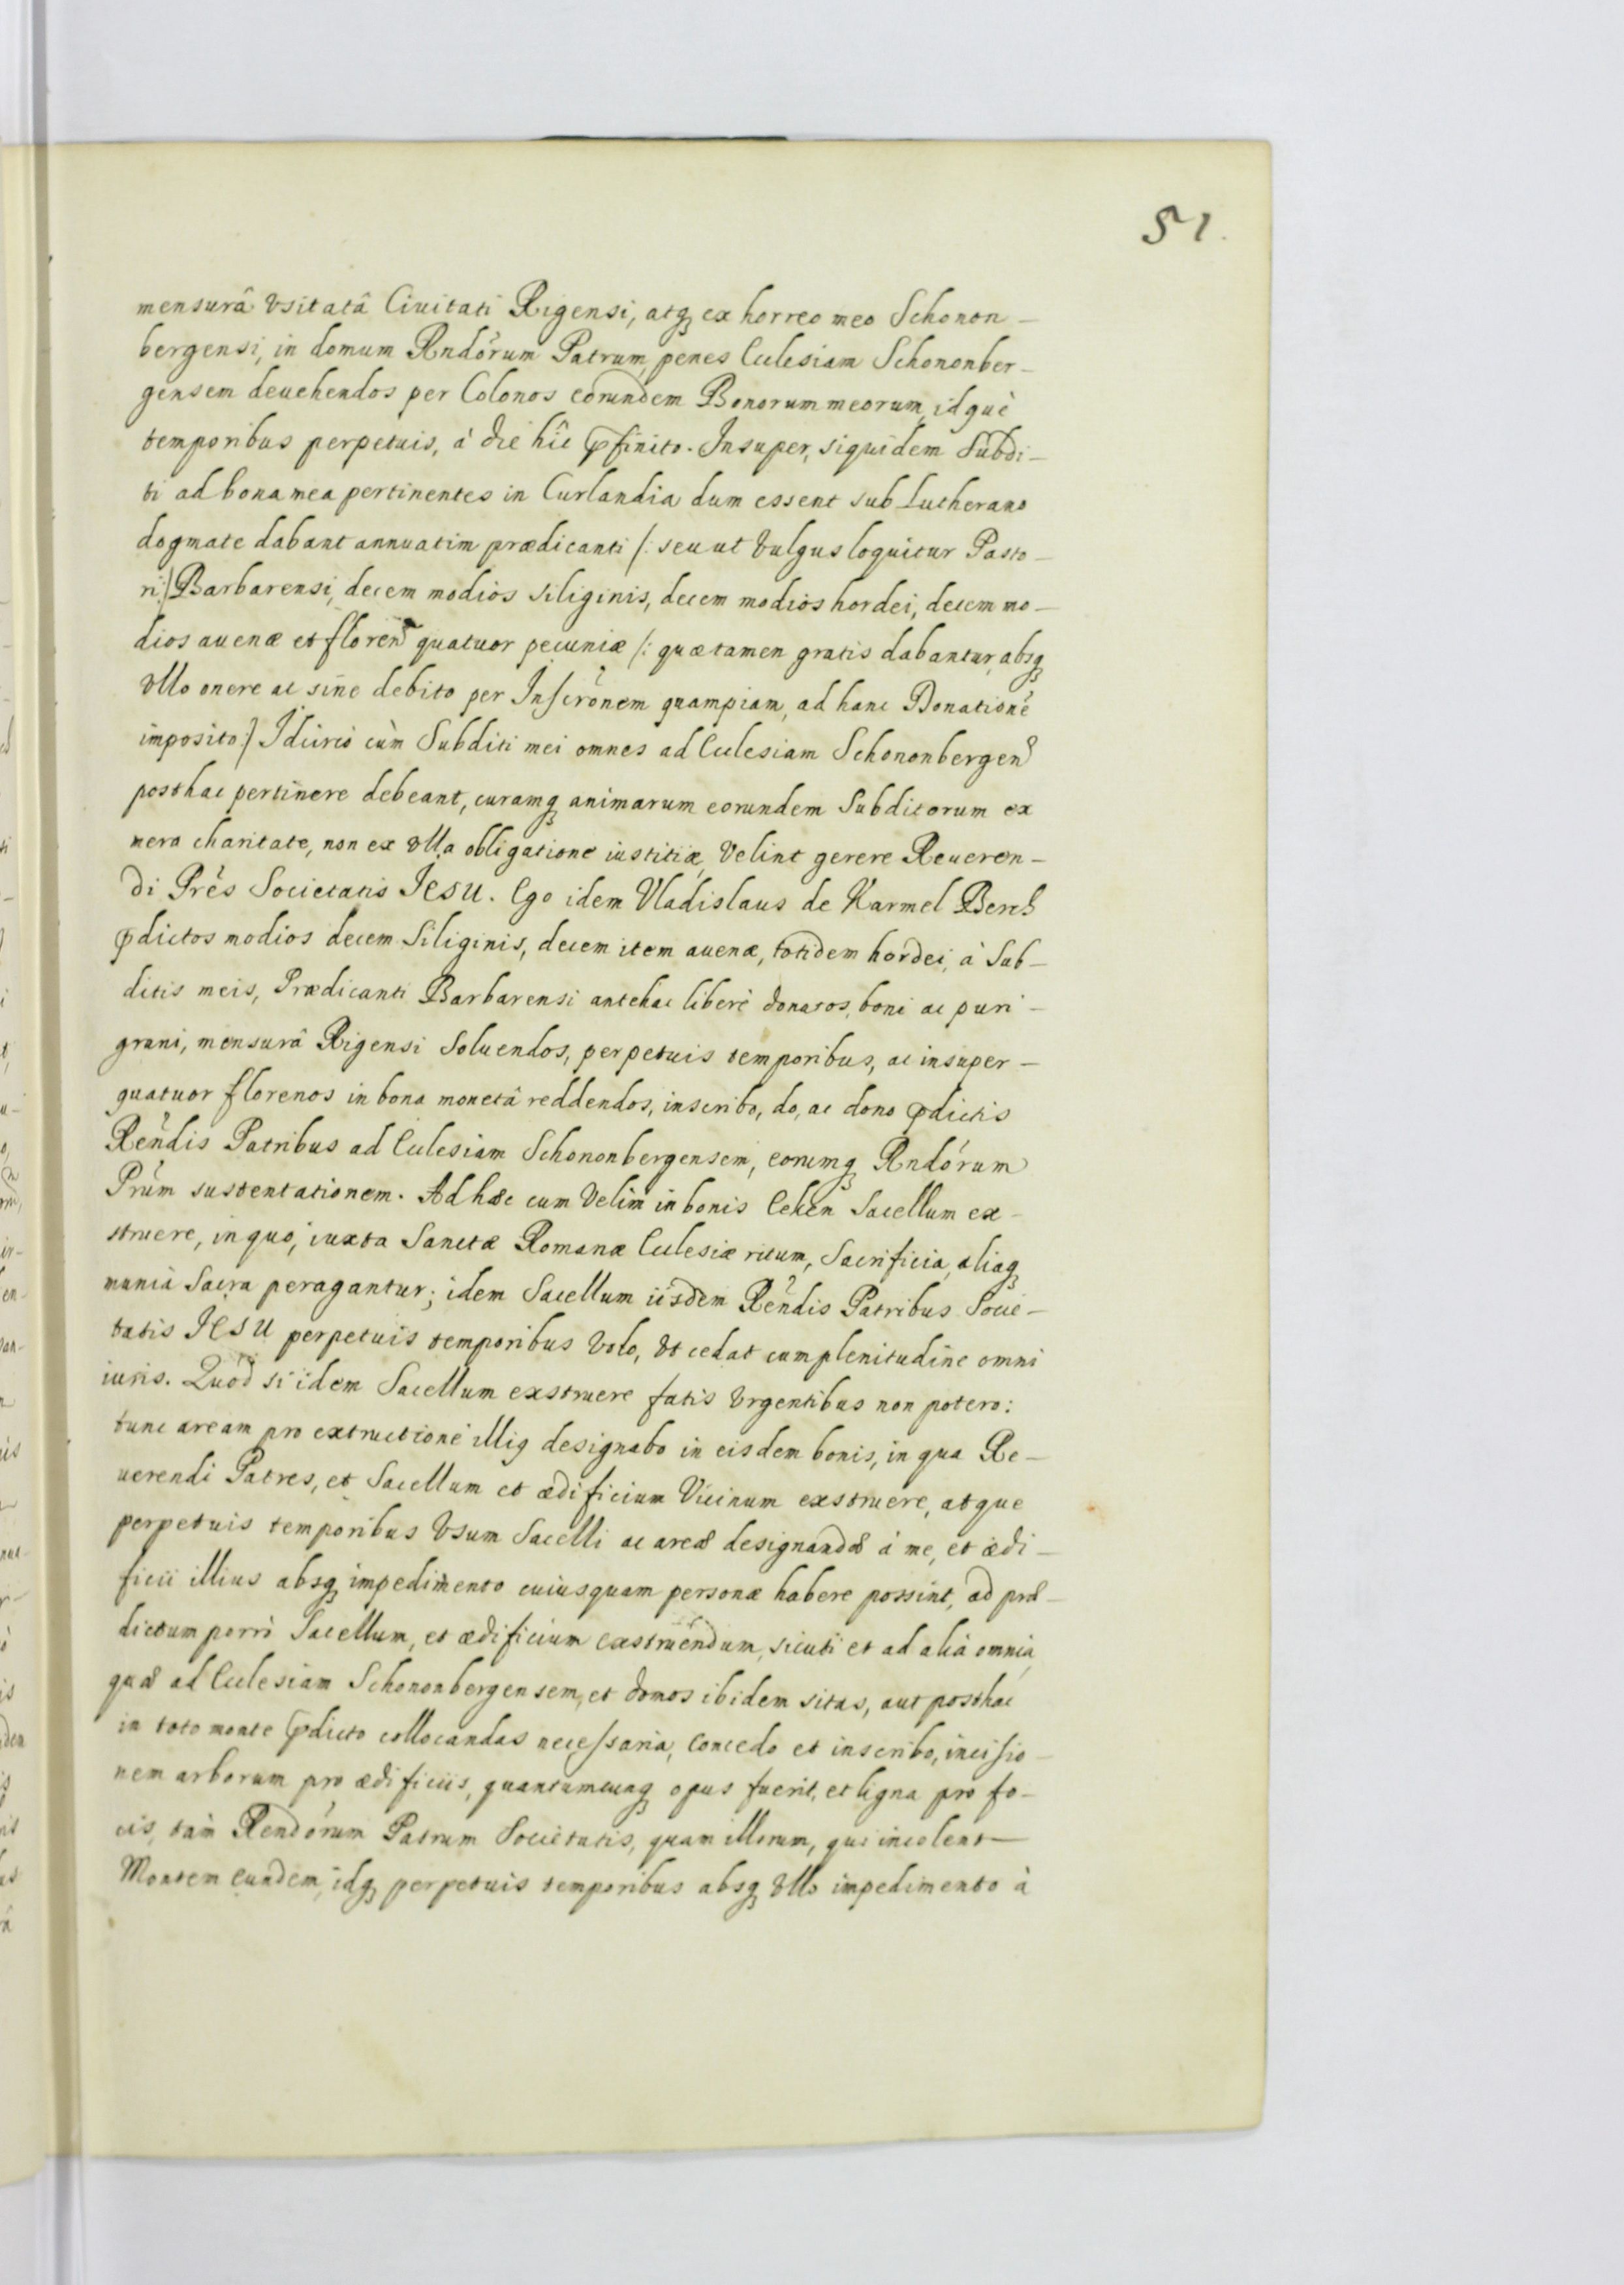 51.
mensurâ vsitatâ Ciuitati Rigensi, atq₃ ex horreo meo Schonon-
bergensi, in domum Rndórum Patrum, penes Ecclesiam Schononber-
gensem deuehendos per Colonos eorundem Bonorum meorum, idquè
temporibus perpetuis, à die hîc p̃finito. Insuper, siquidem Subdi-
ti ad bona mea pertinentes in Curlandia dum essent sub Lutherano
dogmate dabant annuatim prædicanti /: seu ut vulgus loquitur Pasto-
ri:/ Barbarensi, decem modios siliginis, decem modios hordei, decem mo-
dios auenæ et floren̄ quatuor pecuniæ /: quæ tamen gratis dabantur, absq₃
vllo onere ac sine debito per Inscrõnem quampiam, ad hanc Donationẽ
imposito:/ Idcircò cùm Subditi mei omnes ad Ecclesiam Schononbergen̄
posthac pertinere debeant, curamq₃ animarum eorundem Subditorum ex
mera charitate, non ex vlla obligatione iustitiæ, velint gerere Reueren-
di Prẽs Societatis Jesu. Ego idem Vladislaus de Karmel Berch
p̃dictos modios decem Siliginis, decem item auenæ, totidem hordei, à Sub-
ditis meis, Prædicanti Barbarensi antehac liberè donatos, boni ac puri-
grani, mensurâ Rigensi Soluendos, perpetuis temporibus, ac insuper-
quatuor florenos in bona monetâ reddendos, inscribo, do, ac dono p̃dictis
Rẽndis Patribus ad Ecclesiam Schononbergensem, eorumq₃ Rndórum
Prũm sustentationem. Ad hæc cum velim in bonis Ceken Sacellum ex-
struere, in quo, iuxta Sanctæ Romanæ Ecclesiæ ritum, Sacrificia, aliaq₃
munia Sacra peragantur; idem Sacellum iisdem Rẽndis Patribus Socie-
tatis Jesu perpetuis temporibus volo, vt cedat cum plenitudine omni
iuris. Quòd si idem Sacellum exstruere fatis vrgentibus non potero:
tunc aream pro extructione illiq designabo in eisdem bonis, in qua Re-
uerendi Patres, et Sacellum et ædificium vicinum exstruere, atque
perpetuis temporibus vsum Sacelli ac areæ designandæ à me, et ædi-
ficii illius absq₃ impedimento cuiusquam personæ habere possint, ad præ-
dictum porrò Sacellum, et ædificium exstruendum, sicuti et ad alia omnia,
quæ ad Ecclesiam Schononbergensem, et domos ibidem sitas, aut posthac
in toto monte p̃dicto collocandas necessaria, concedo et inscribo, incisio-
nem arborum pro ædificiis, quantumcunq₃ opus fuerit, et ligna pro fo-
cis, tàm Rendórum Patrum Societatis, quam illorum, qui incolent
Montem eundem, idq₃ perpetuis temporibus absq₃ vllo impedimento à